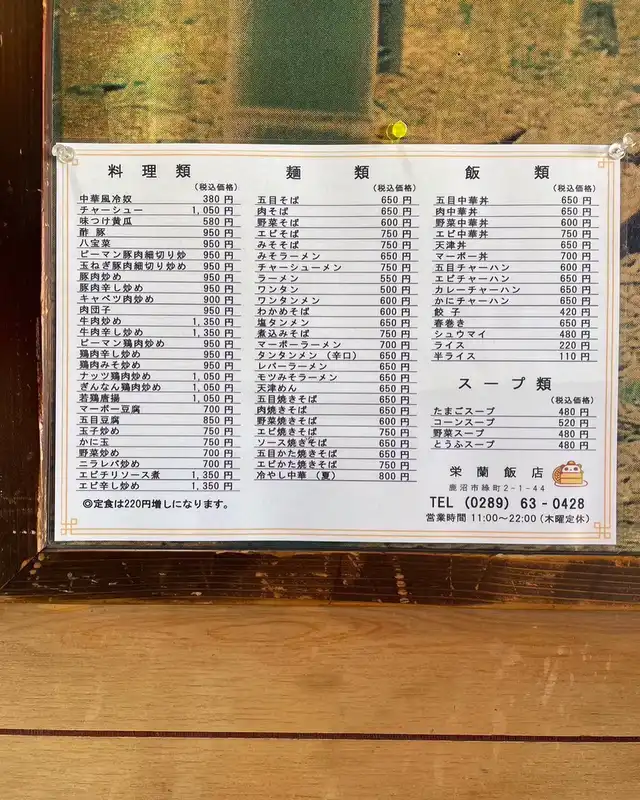 料理類
(税込価格)
中華風冷奴 380円
チャーシュー 1,050円
味つけ黄瓜 580円
酢豚 950円
八宝菜 950円
ピーマン豚肉細切り炒 950円
玉ねぎ豚肉細切り炒め 950円
豚肉炒め 950円
豚肉辛し炒め 950円
キャベツ肉炒め 900円
肉団子 950円
牛肉炒め 1,350円
牛肉辛し炒め 1,350円
ピーマン鶏肉炒め 950円
鶏肉辛し炒め 950円
鶏肉みそ炒め 950円
ナッツ鶏肉炒め 1,050円
ぎんなん鶏肉炒め 1,050円
若鶏唐揚 1,050円
マーボー豆腐 700円
五目豆腐 850円
玉子炒め 750円
かに玉 750円
野菜炒め 700円
ニラレバ炒め 700円
エビチリソース煮 1,350円
エビ辛し炒め 1,350円
◎定食は220円増しになります。
麺類
(税込価格)
五目そば 650円
肉そば 650円
野菜そば 600円
エビそば 750円
みそそば 750円
みそラーメン 650円
チャーシューメン 750円
ラーメン 550円
ワンタン 500円
ワンタンメン 600円
わかめそば 600円
塩タンメン 650円
煮込みそば 750円
マーボーラーメン 700円
タンタンメン (辛口) 650円
レバーラーメン 650円
モツみそラーメン 650円
天津めん 650円
五目焼きそば 650円
肉焼きそば 650円
野菜焼きそば 600円
エビ焼きそば 750円
ソース焼きそば 650円
五目かた焼きそば 650円
エビかた焼きそば 750円
冷やし中華 (夏) 800円
飯類
(税込価格)
五目中華丼 650円
肉中華丼 650円
野菜中華丼 650円
エビ中華丼 750円
天津丼 650円
マーボー丼 700円
五目チャーハン 600円
エビチャーハン 650円
カレーチャーハン 650円
かにチャーハン 650円
餃子 420円
春巻き 650円
シュウマイ 480円
ライス 220円
半ライス 110円
スープ類
(税込価格)
たまごスープ 480円
コーンスープ 520円
野菜スープ 480円
とうふスープ 480円
栄蘭飯店
鹿沼市緑町2-1-44
TEL (0289) 63-0428
営業時間 11:00～22:00 (木曜定休)